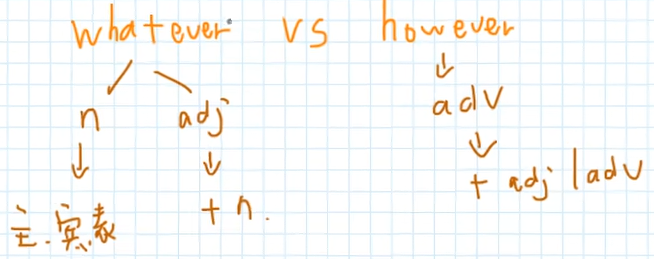 whatever vs however
n adj adv
主.宾.表 + n. + adj | adv